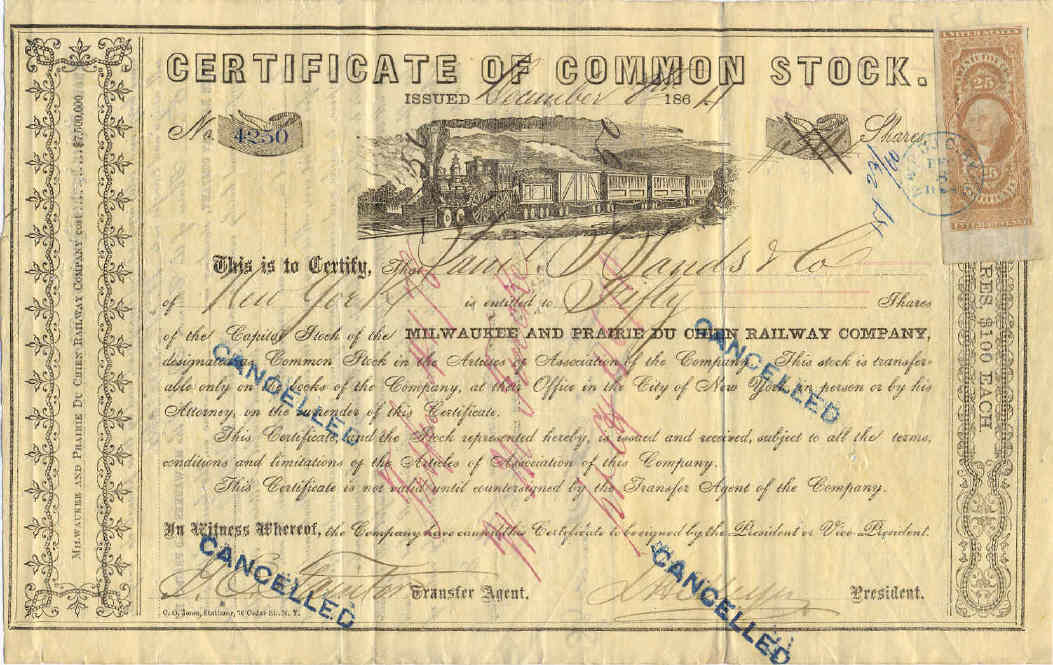 CERTIFICATE OF COMMON STOCK.
ISSUED December 186 4
No. 4250
50
50
Shares
UNITED STATES
25
25
UNITED STATES
This is to Certify, That Sands & Co
of New York is entitled to Fifty Shares
of the Capital Stock of the MILWAUKEE AND PRAIRIE DU CHIEN RAILWAY COMPANY,
designated as Common Stock in the Articles of Association of the Company. This stock is transfer-
able only on the books of the Company, at their Office in the City of New York in person or by his
Attorney, on the surrender of this Certificate.
This Certificate, and the Stock represented hereby, is issued and received, subject to all the terms,
conditions and limitations of the Articles of Association of this Company.
This Certificate is not valid until countersigned by the Transfer Agent of the Company.
In Witness Whereof, the Company have caused this Certificate to be signed by the President or Vice-President.
Transfer Agent.
President.
C. O. Jones, Stationer, 76 Cedar St. N. Y.
MILWAUKEE AND PRAIRIE DU CHIEN RAILWAY COMPANY COST $7,500,000
RES $100 EACH
CANCELLED
CANCELLED
CANCELLED
CANCELLED